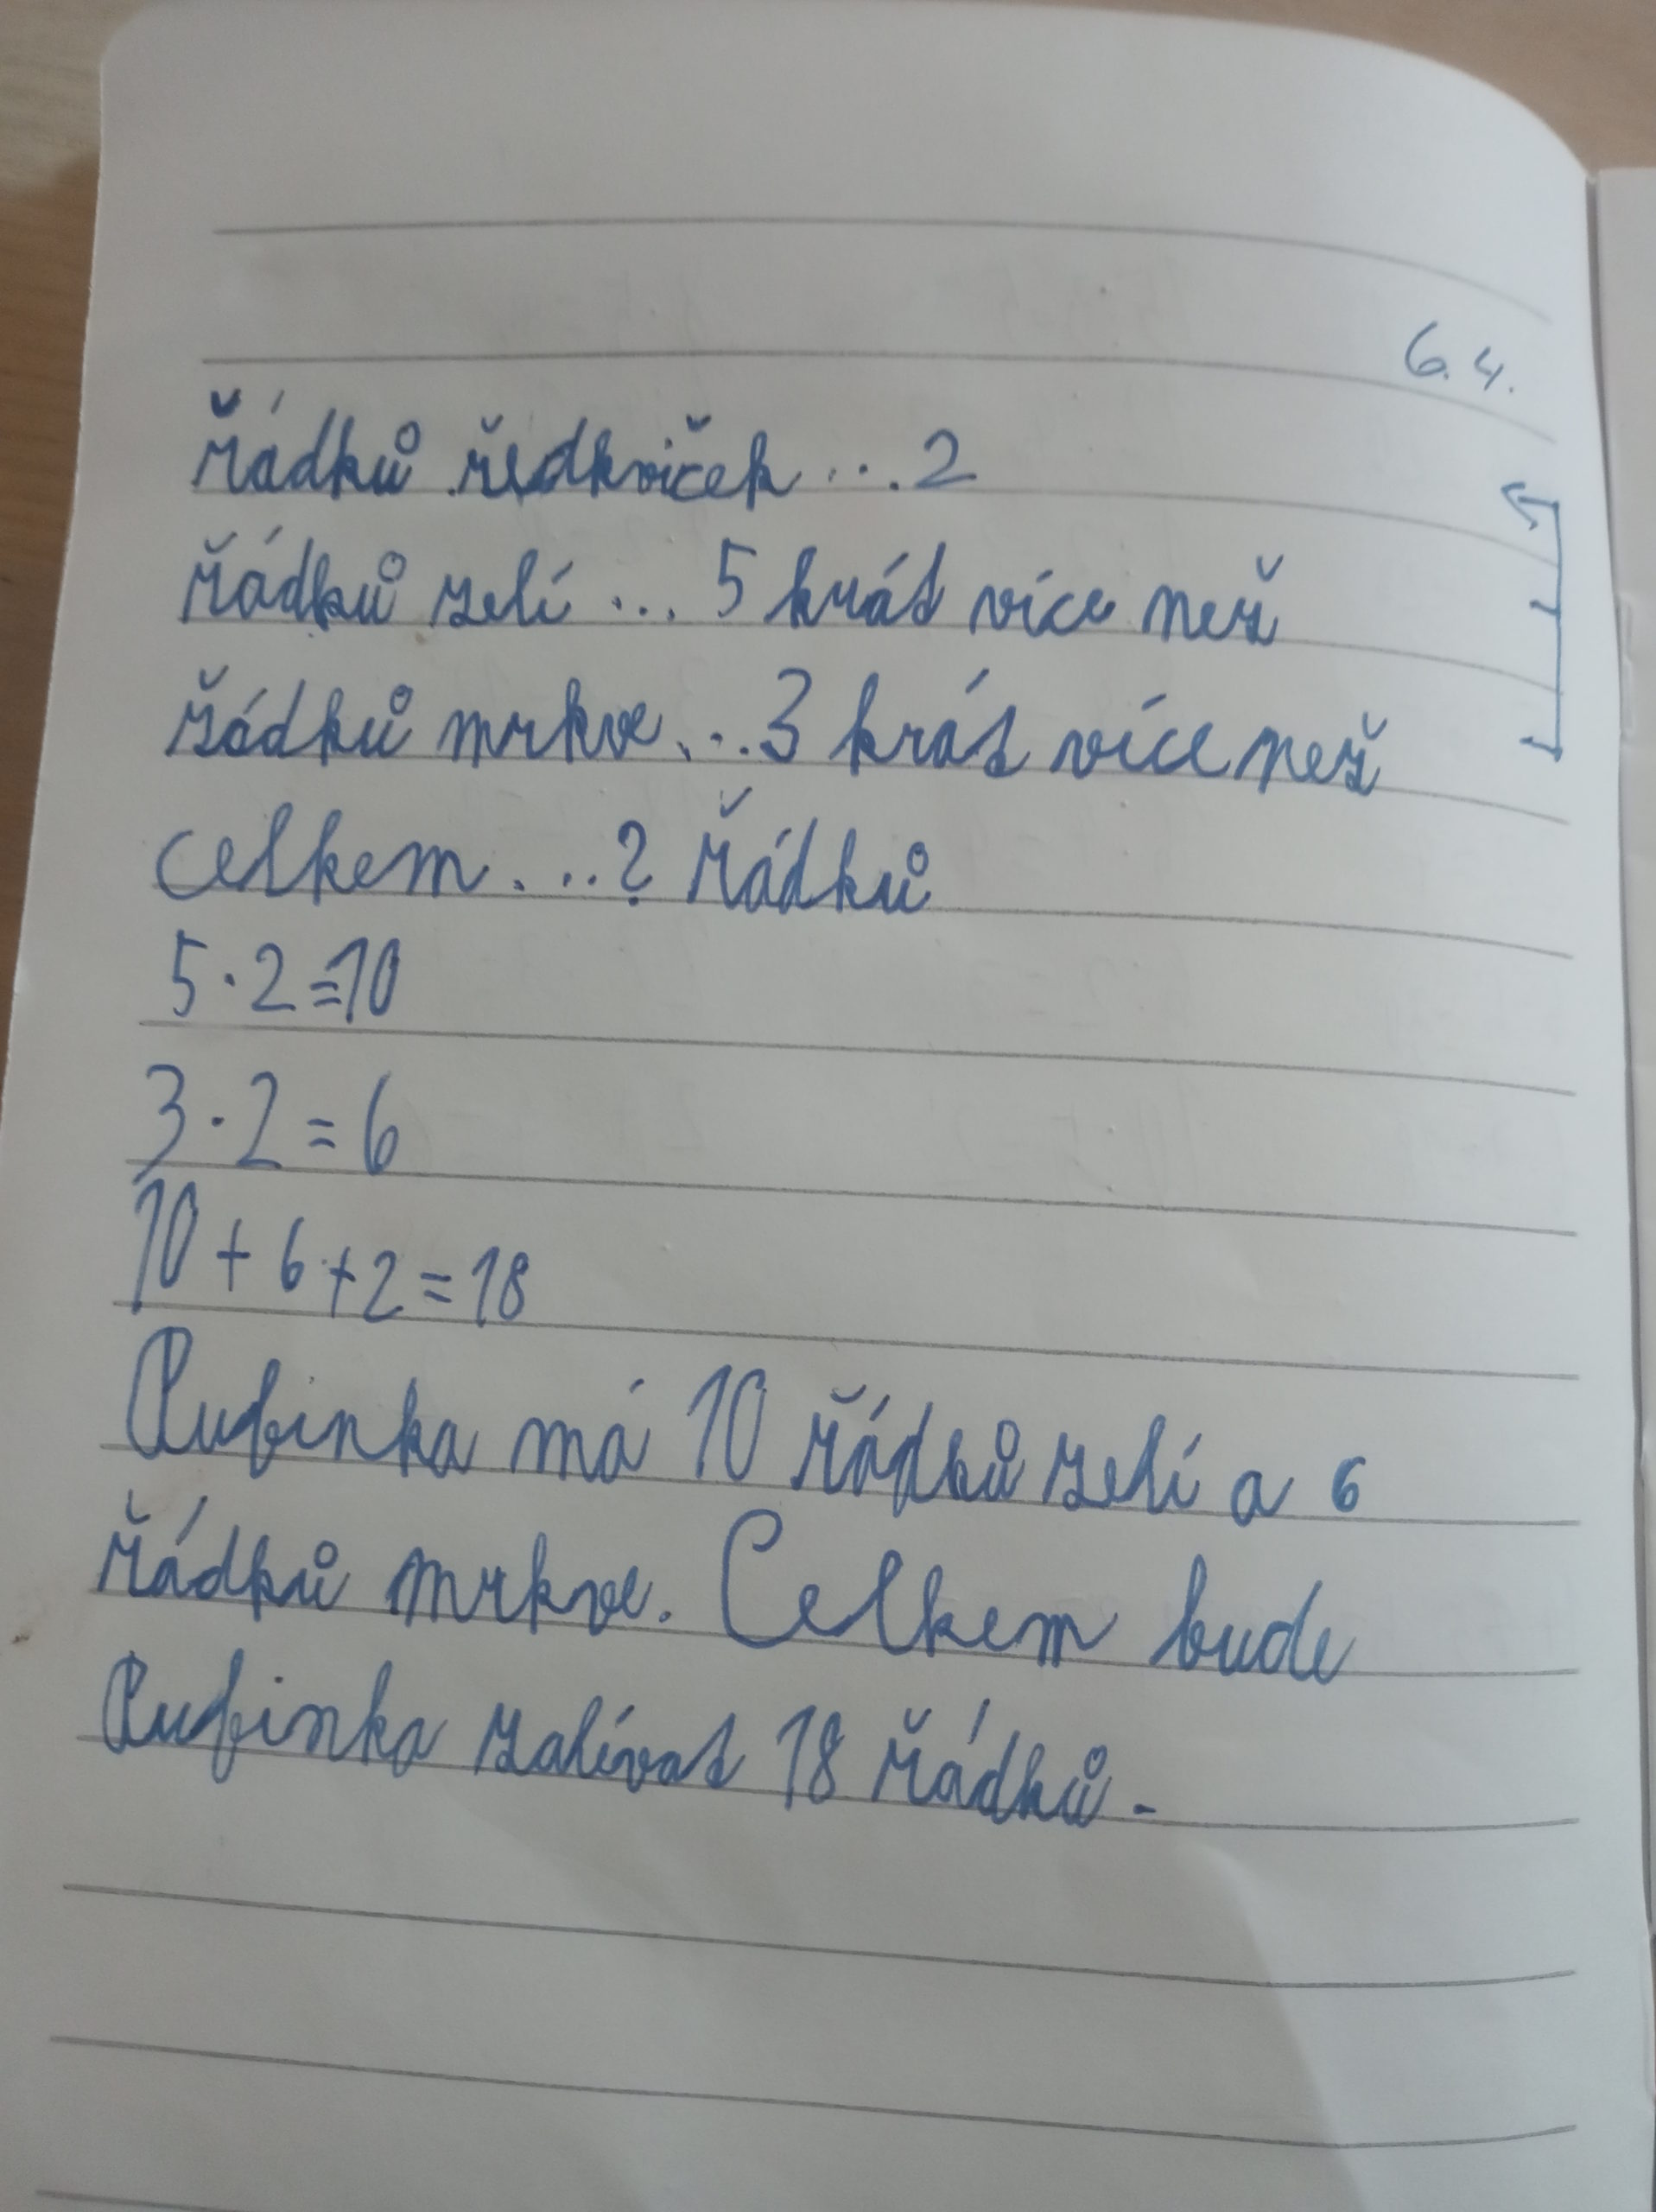 6.4.
řádků ředkviček...2
řádků zelí... 5 krát více než
řádků mrkve...3 krát více než
celkem...? řádků
5·2=10
3·2=6
10+6+2=18
Rubínka má 10 řádků zelí a 6
řádků mrkve. Celkem bude
Rubínka zalívat 18 řádků.